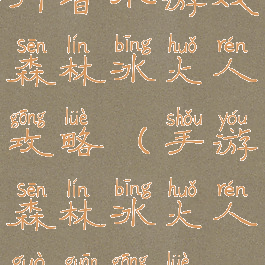 sēn lín bīng huǒ rén
森林冰火人
gōng lüè shǒu yóu
攻略（手游
sēn lín bīng huǒ rén
森林冰火人
guò guān gōng lüè